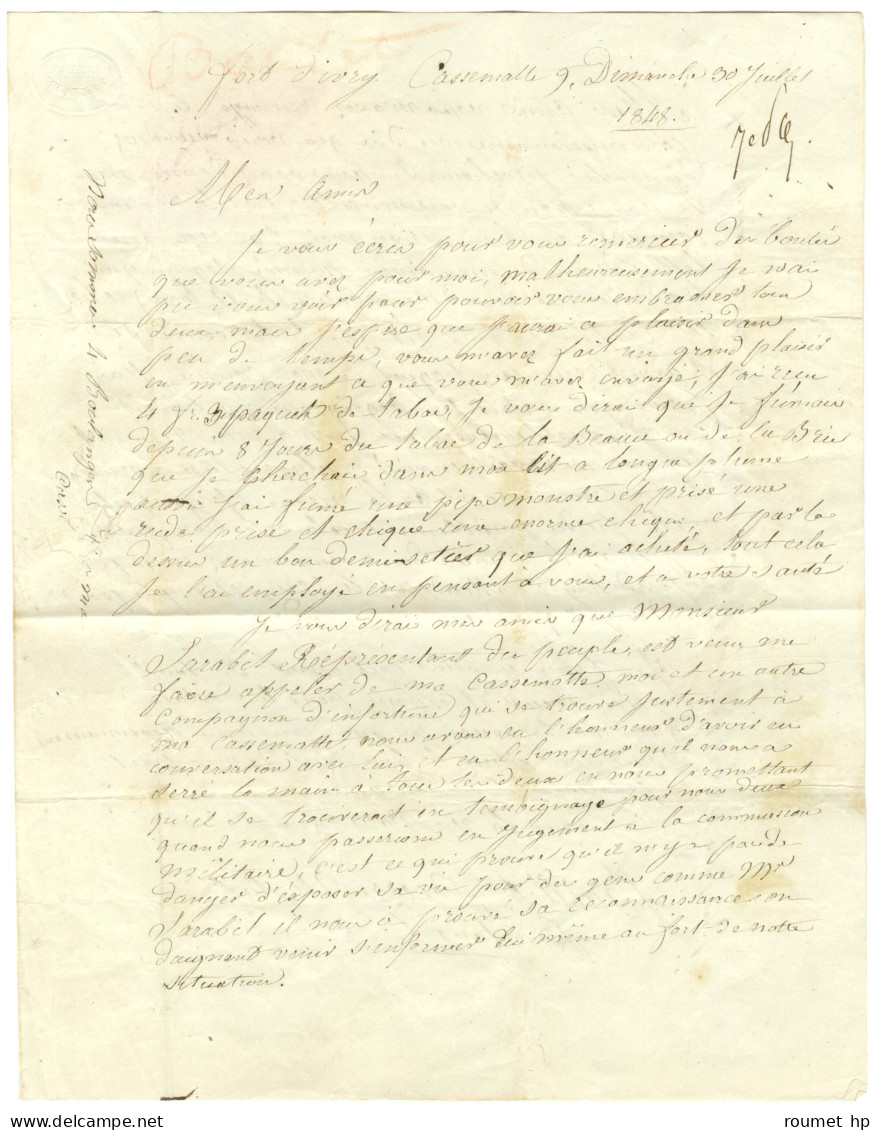 fort d'ivry Cassematte 9, Dimanche 30 Juillet
1848.
Mes Amis
Je vous écris pour vous remercier des boutés
que vous avez pour moi, malheureusement Je n'ai
pu vous voir pour pouvoir vous embrasser tous
deux mais j'espère que j'aurai ce plaisir dans
peu de temps, vous m'avez fait un grand plaisir
en m'envoyant ce que vous m'avez envoyé, J'ai recu
4 fr. 3 paquets de tabac, Je vous dirai que Je fumais
depuis 8 Jours du tabac de la Beauce ou de la Brie
que Je cherchais dans mon lit a longue plume
aussi J'ai fumé une pipe monstre et prisé une
rude prise et chiqué une enorme chique, et par la
dessus un bon demi setier que J'ai acheté, tout cela
Je l'ai employé en pensant a vous, et a votre santé
Je vous dirai mes amis que Monsieur
Sarabit Réprésentant du peuple, est venu me
faire appeler de ma Cassematte, moi et un autre
Compagnon d'infortune qui se trouve Justement à
ma Cassematte, nous avons eu l'honneur d'avoir eu
conversation avec lui, et eu l'honneur qu'il nous a
serré la main à tous les deux en nous promettant
qu'il se trouverait en temoignage pour nous deux
quand nous passerions en Jugement à la commission
militaire, c'est ce qui prouve qu'il n'y a pas de
danger d'éxposer sa vie pour des gens comme Mr
Sarabit il nous à prouvé sa reconnaissance en
daignant venir s'informer lui même au fort de notre
situation.
roumet hp